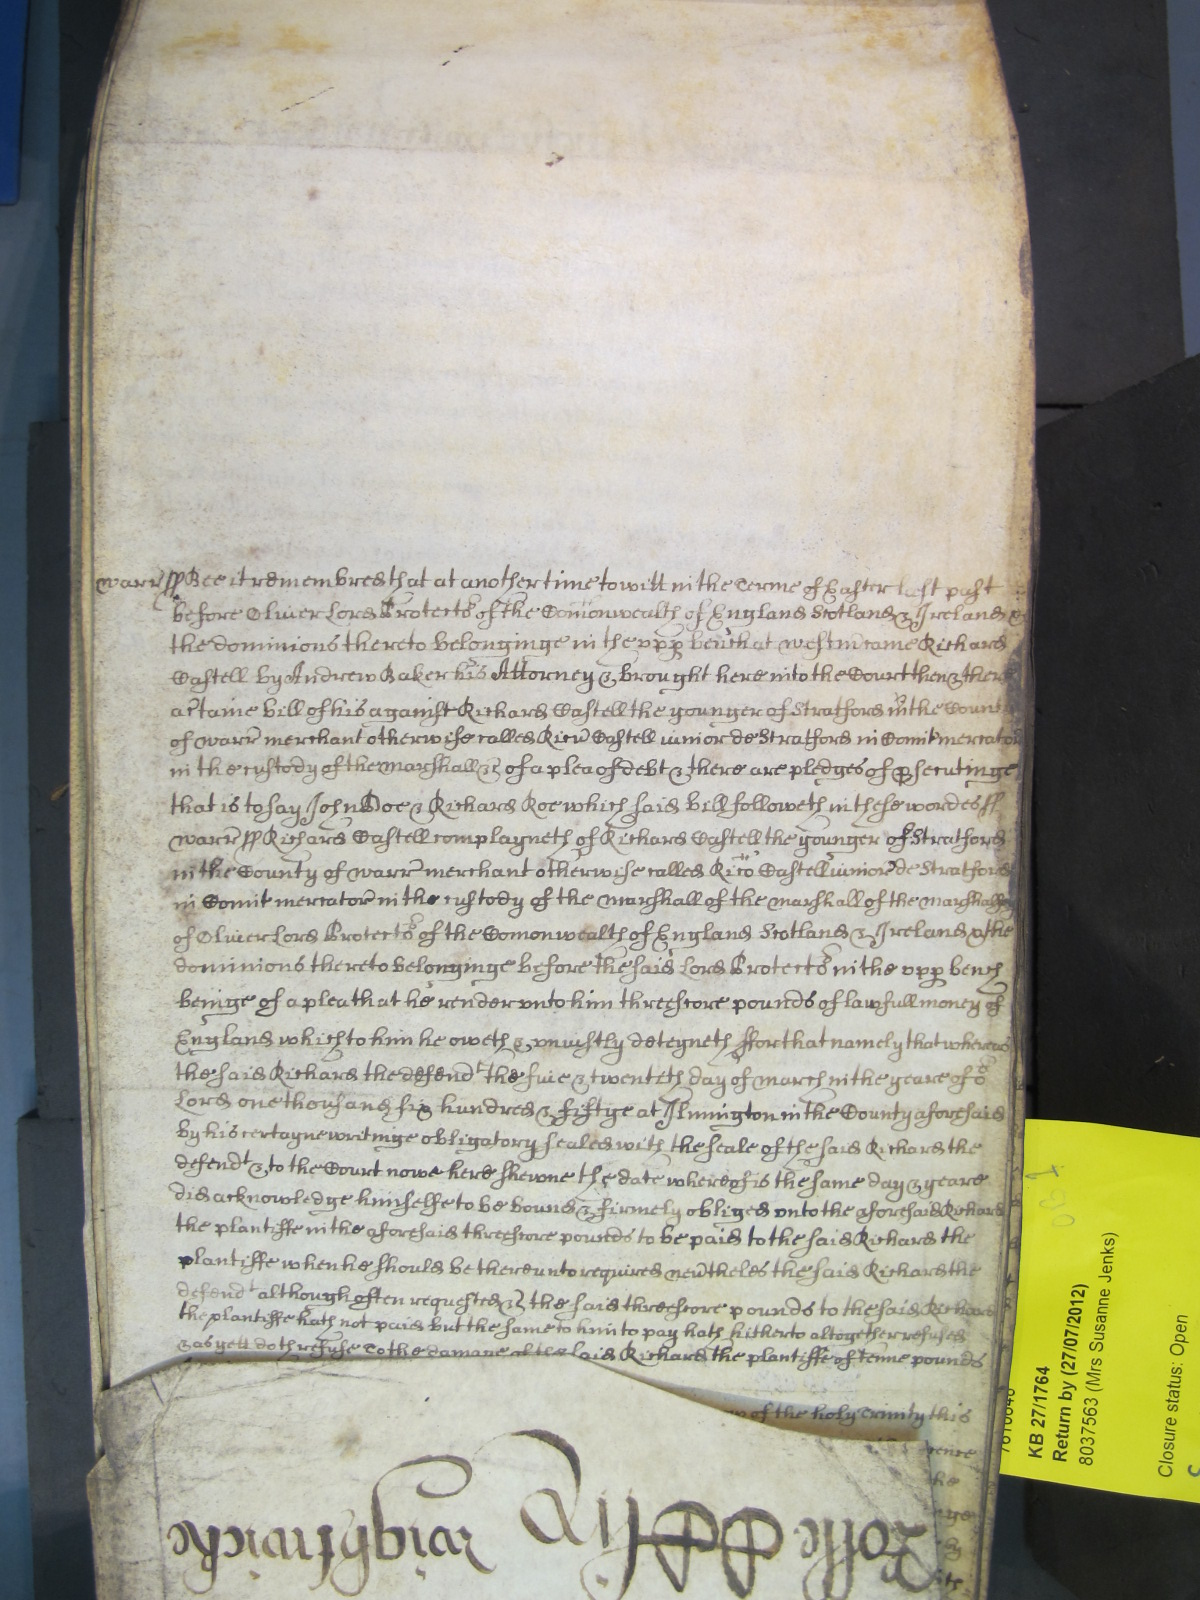 warr ff Bee it remembred that at another time to witt in the Terme of Easter last past
before Oliver Lord Protector of the Comonwealth of England Scotland & Ireland &
the dominions thereto belonginge in the upp bench at westm came Richard
Castell by Andrew Baker his Attorney & brought here into the Court then & there
a certaine bill of his against Richard Castell the younger of Stratford in the County
of warr merchant otherwise called Ricu Castell iunior de Stratford in Comit mercator
in the custody of the marshall &c of a plea of debt & there are pledges of psecutinge
that is to say John Doe & Richard Roe which said bill followeth in these wordes ff
warr ff Richard Castell complayneth of Richard Castell the younger of Stratford
in the County of warr merchant otherwise called Rico Castell iunior de Stratford
in Comit mercator in the custody of the marshall of the marshall of the marshallsey
of Oliver Lord Protector of the Comonwealth of England Scotland & Ireland & the
dominions thereto belonginge before the said Lord Protector in the upp bench
beinge of a plea that he render unto him threescore pounds of lawfull money of
England which to him he oweth & uniustly deteyneth ffor that namely that whereas
the said Richard the defendt the five & twenteth day of march in the yeare of or
Lord one thousand six hundred & fiftye at Ilmington in the County aforesaid
by his certayne writinge obligatory sealed with the seale of the said Richard the
defendt & to the Court nowe here shewne the date whereof is the same day & yeare
did acknowledge himselfe to be bound & firmely obliged unto the aforesaid Richard
the plantiffe in the aforesaid threescore pounds to be paid to the said Richard the
plantiffe when he should be thereunto required nevtheles the said Richard the
defendt although often requested &c the said threescore pounds to the said Richard
the plantiffe hath not paid but the same to him to pay hath hitherto altogether refused
& as yett doth refuse To the damage of the said Richard the plantiffe of tenne pounds
of the holy Trinity this
KB 27/1764
Return by (27/07/2012)
8037563 (Mrs Susanne Jenks)
Closure status: Open